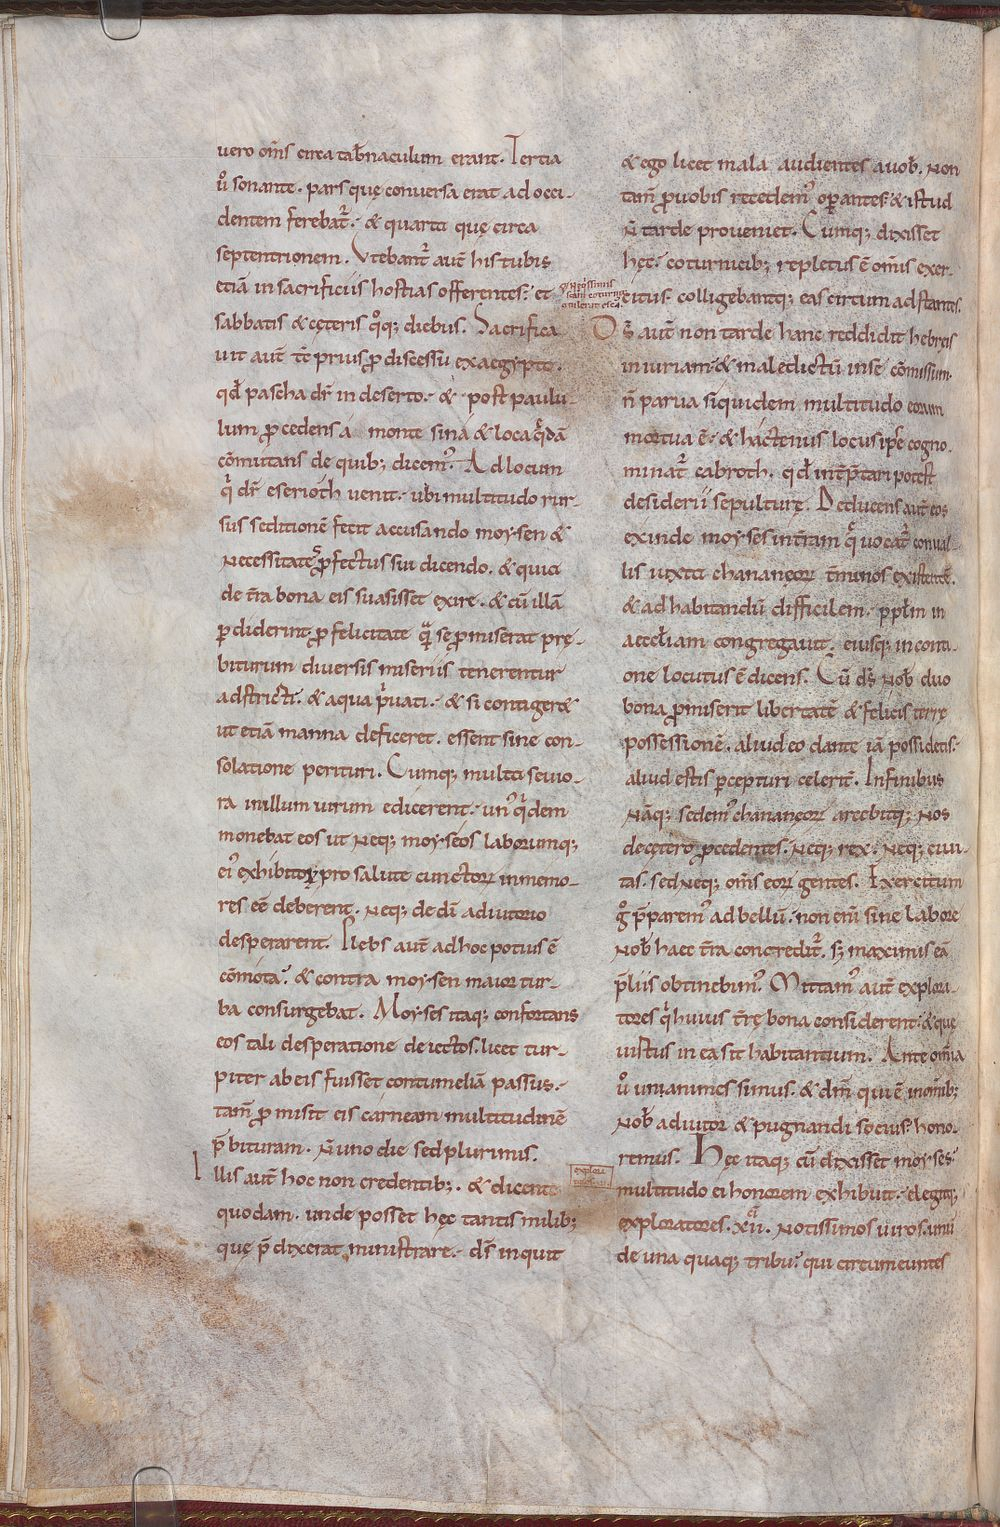 vero om̅s circa tab̅naculum erant. Tertia
u̅ sonante. pars quę conversa erat ad occi-
dentem ferebat᷑. & quarta quę circa
septentrionem. Utebant᷑ aut̅ his tubis
etiā in sacrificiis hostias offerentes. et
sabbatis & cęteris q̊q; diebus. Sacrifica
vit aut̅ tc̅ prius ꝓ discessu ex aegypto.
qd̅ pascha dr̅ in deserto. & post paulu-
lum ꝓcedens a monte sina & loca q̄dā
cōmutans de quib; dicem᷒. Ad locum
q̇ dr̅ eseroth venit. ubi multitudo rur-
sus seditionē fecit accusando moysen &
necessitatē ꝓfectus sui dicendo. & quia
de tr̅a bona eis suasisset exire. & cū illā
ꝑdiderint ꝓ felicitate quā se ꝓmiserat prę-
biturum diversis miseriis tenerentur
adstricti. & aqua ṗvati. & si contiger&
ut etiā manna deficeret. essent sine con-
solatione perituri. Cumq; multa sevio-
ra in illum virum edicerent. un᷒ q̇dem
monebat eos ut neq; moyseos laborumq;
ei᷒ exhibitoꝝ pro salute cunctorꝝ inmemo-
res eē deberent. neq; de di̅ adiutorio
desperarent. Plebs aut̅ ad hoc potius ē
cōmota. & contra moysen maior tur-
ba consurgebat. Moyses itaq; confortans
eos tali desperatione deiectos. licet tur-
piter ab eis fuisset contumeliā passus.
tam̅ ꝓmisit eis carneam multitudinē
p̅bituram. n̅ uno die sed plurimis.
Illis aut̅ hoc non credentib;. & dicente
quodam. unde posset hęc tantis milib;
quę p̅dixerat ministrare. ds̅ inquit
& ego licet mala audientes a vob̅. non
tam̅ ꝓ vobis recedem᷒ oꝑantes. & istud
n̅ tarde proveniet. Cumq; dixisset
hęc. coturnicib; repletus ē om̅is exer-
citus. colligebantq; eas circum adstantes.
Ds̅ aut̅ non tarde hanc reddidit hebreis
iniuriam. & maledictū in se cōmissum.
n̅ parva siquidem multitudo eorum
mortua ē. & hactenus locus ipse cogno-
minat᷑ cabroth. qd̅ int̅p̅tari potest
desiderii sepulturę. Deducens aut̅ eos
exinde moyses in tr̅am q̄ vocat᷑ convai-
lis iuxta chananęorꝝ t̅minos existente.
& ad habitandū difficilem. ppl̅m in
aeccl̅iam congregavit. eiusq; in conti-
one locutus ē dicens. Cū ds̅ nob̅ duo
bona ꝓmiserit libertatē & felicis terrę
possessionē. aliud eo dante iā possidetis.
aliud estis ꝑcepturi celerit̅. In finibus
nāq; sedem᷒ chananęorꝝ arecbitq; nos
de cętero ꝓcedentes. neq; rex. neq; civi-
tas. sed neq; om̅s eorꝝ gentes. Exercitum
g̊ p̅parem᷒ ad bellū. non eni̅ sine labore
nob̅ haec tr̅a concredit᷑. sꝫ maximis eā
p̅liis obtinebim᷒. Mittam᷒ aut̅ explora-
tores q̇ huius tr̅ę bona considerent. & quę
virtus in ea sit habitantium. Ante om̅ia
u̅ unanimes simus. & dm̅ qui ē in om̅ib;
nob̅ adiutor & pugnandi socius. hono-
remus. Hęc itaq; cū dixisset moyses.
multitudo ei honorem exhibuit. elegitq;
exploratores. xii. notissimos viros. unū
de una quaq; tribu. qui circumeuntes